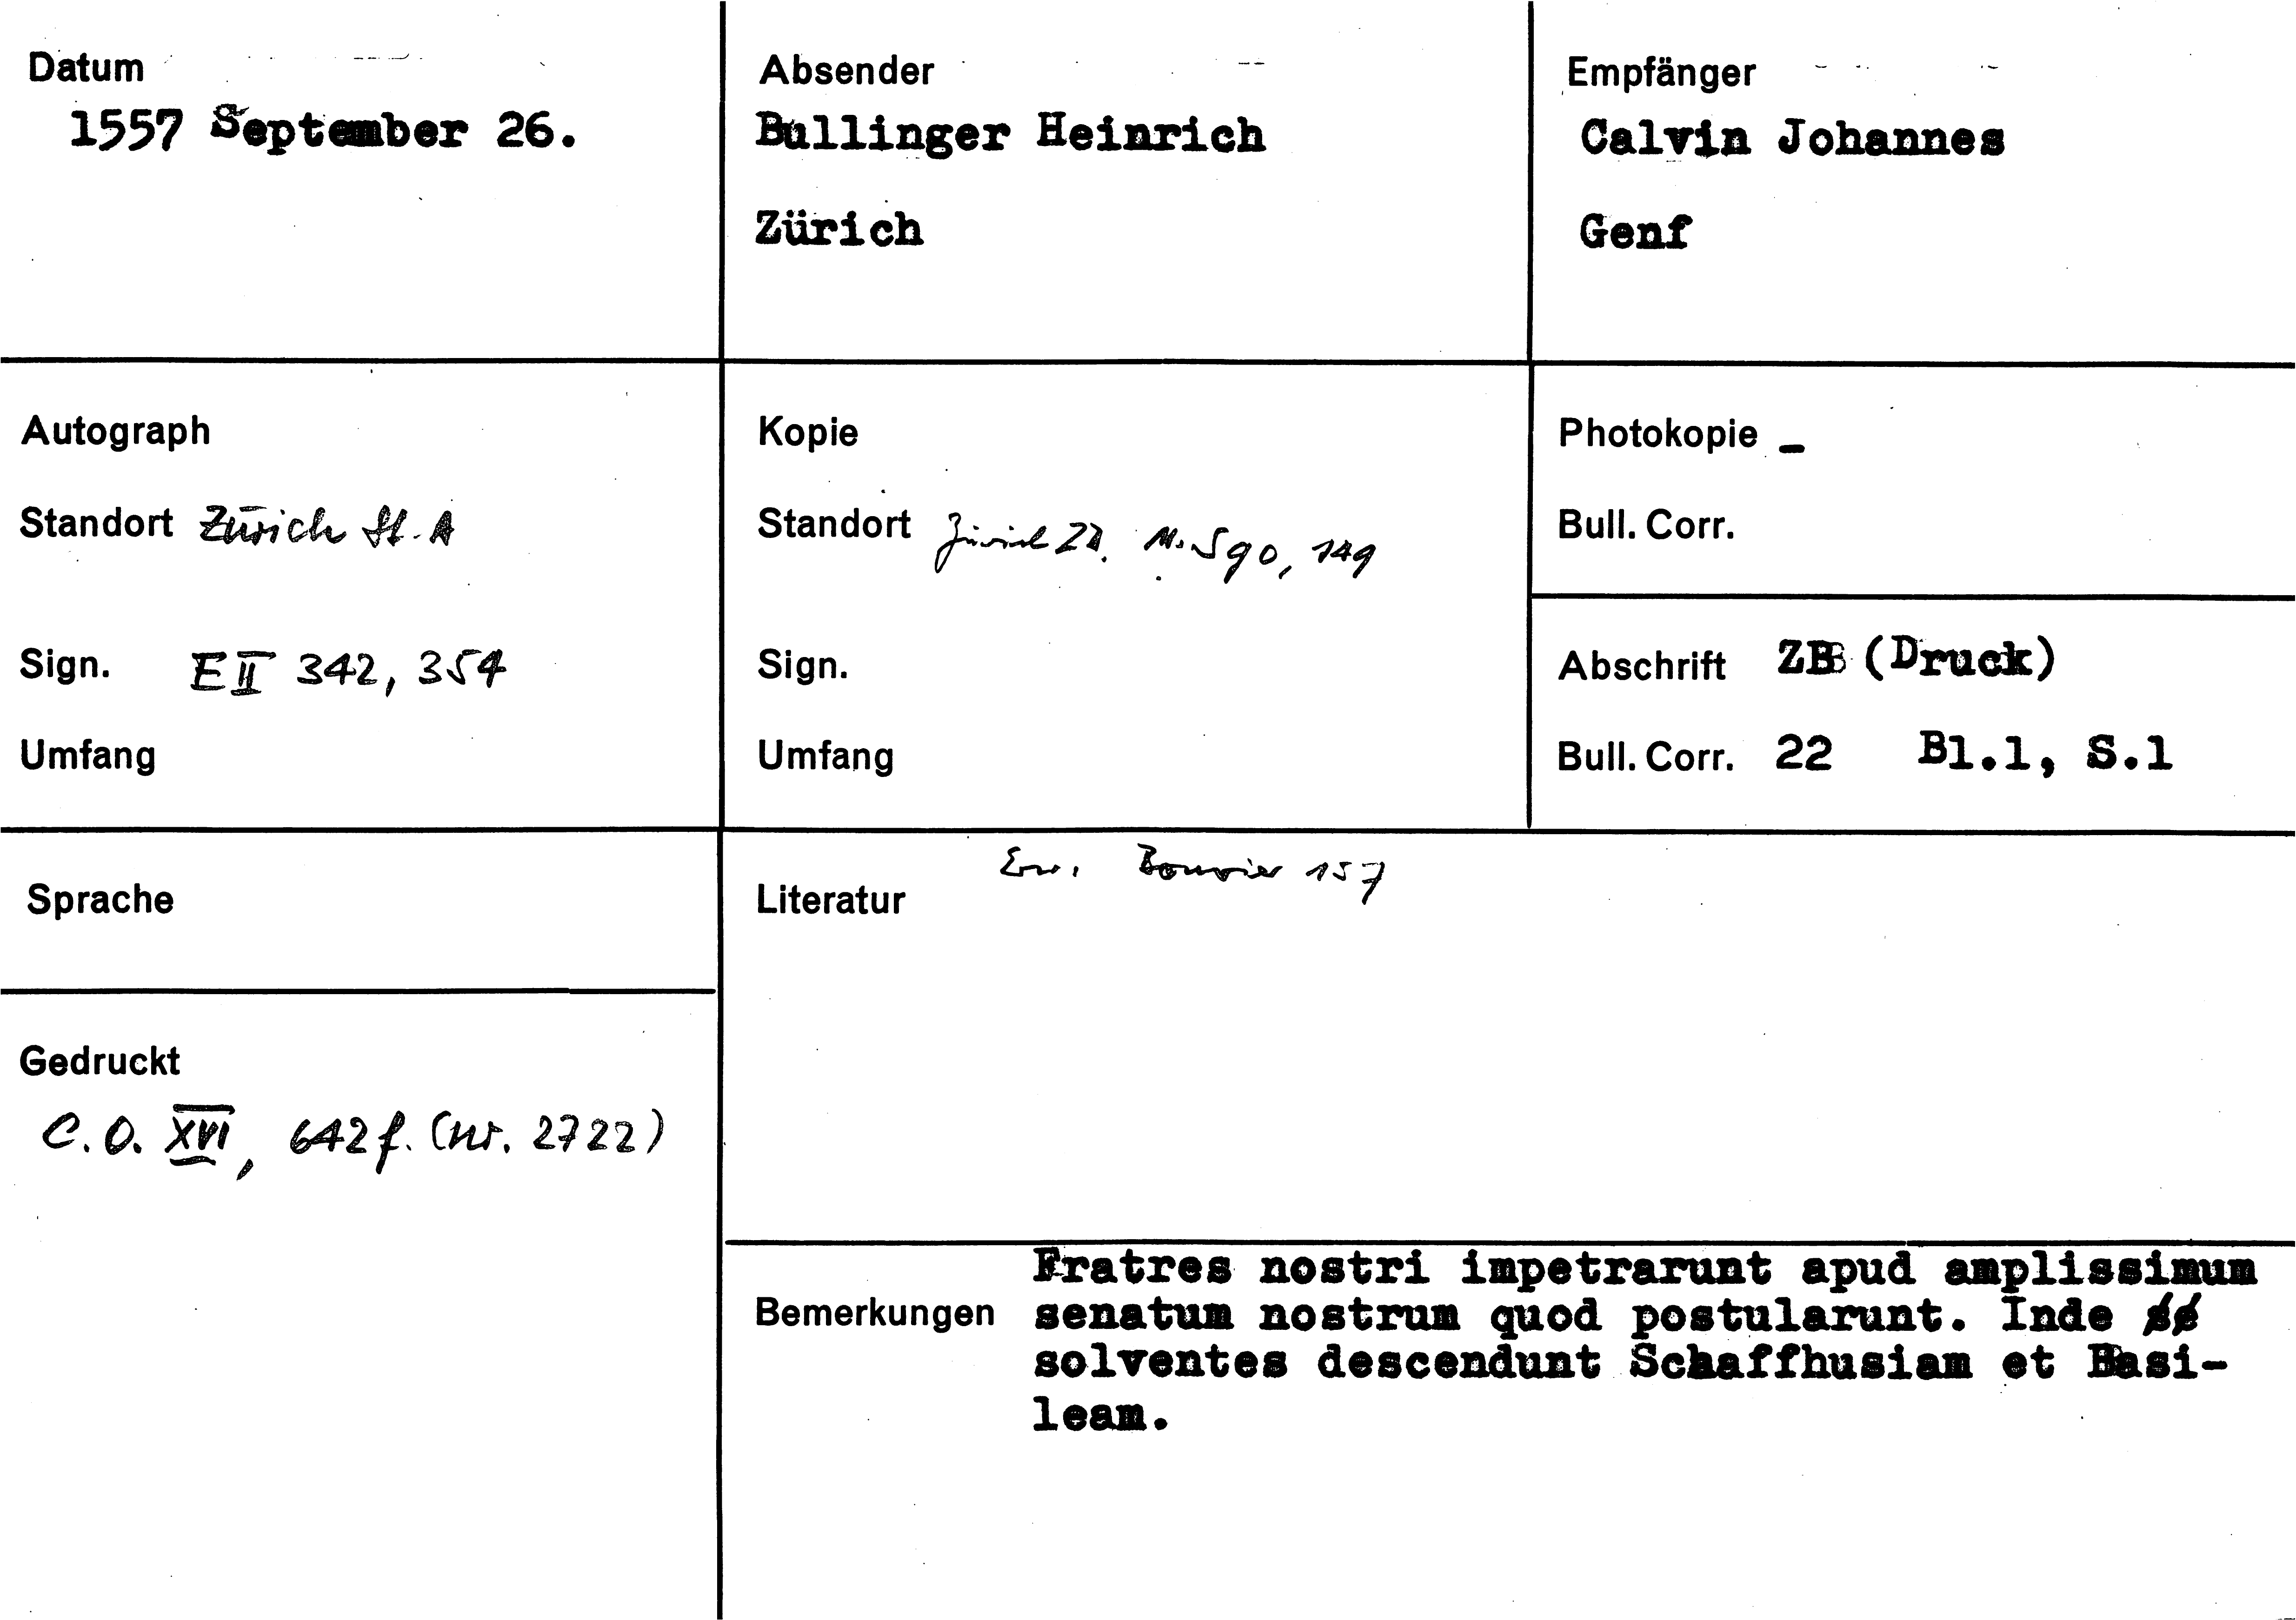 Datum
1557 September 26.
Absender
Bullinger Heinrich
Zürich
Empfänger
Calvin Johannes
Genf
Autograph
Standort Zürich St. A
Sign. E II 342, 354
Umfang
Kopie
Standort Zürich ZB. Ms S 90, 149
Sign.
Umfang
Photokopie -
Bull. Corr.
Abschrift ZB (Druck)
Bull. Corr. 22 Bl.1, S.1
Sprache
Gedruckt
C. O. XVI, 642 f. (Nr. 2722)
Literatur
Erw. Bouvier 157
Bemerkungen
Fratres nostri impetrarunt apud amplissimum
senatum nostrum quod postularunt. Inde
solventes descendunt Schaffhusiam et Basi-
leam.